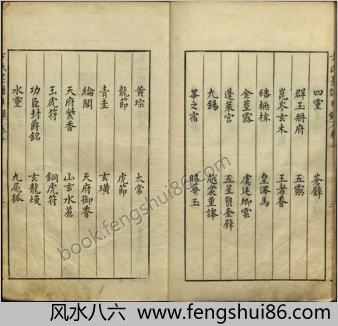 四靈 蒼籙
群玉册府 五雲
崑岑玄木 王者香
蟠桃核 皇澤馬
金莖露 虞廷卿雲
蓬萊宫 五星聚奎
九錫 越裳重譯
畢之宿
黄琮 太常
龍節 虎節
青圭 玄璜
綸閣 天府御香
天府紫香 山玄水蒼
玉虎符 銅虎符
功臣封爵銘 玄龍
水靈 九尾狐
book.fengshui86.com
风水八六 www.fengshui86.com